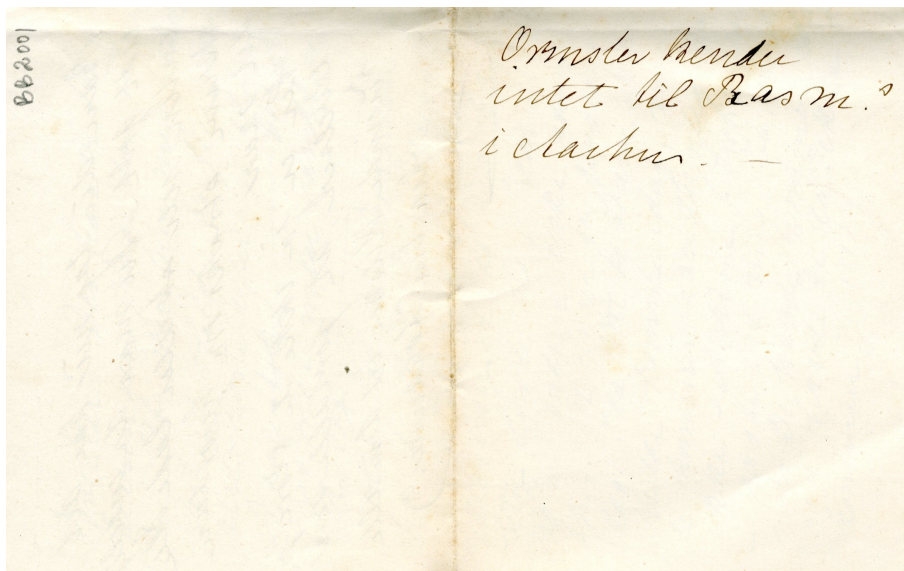 BB2001
Ørnsler kender
intet til Rasm.s
i Aarhus. —